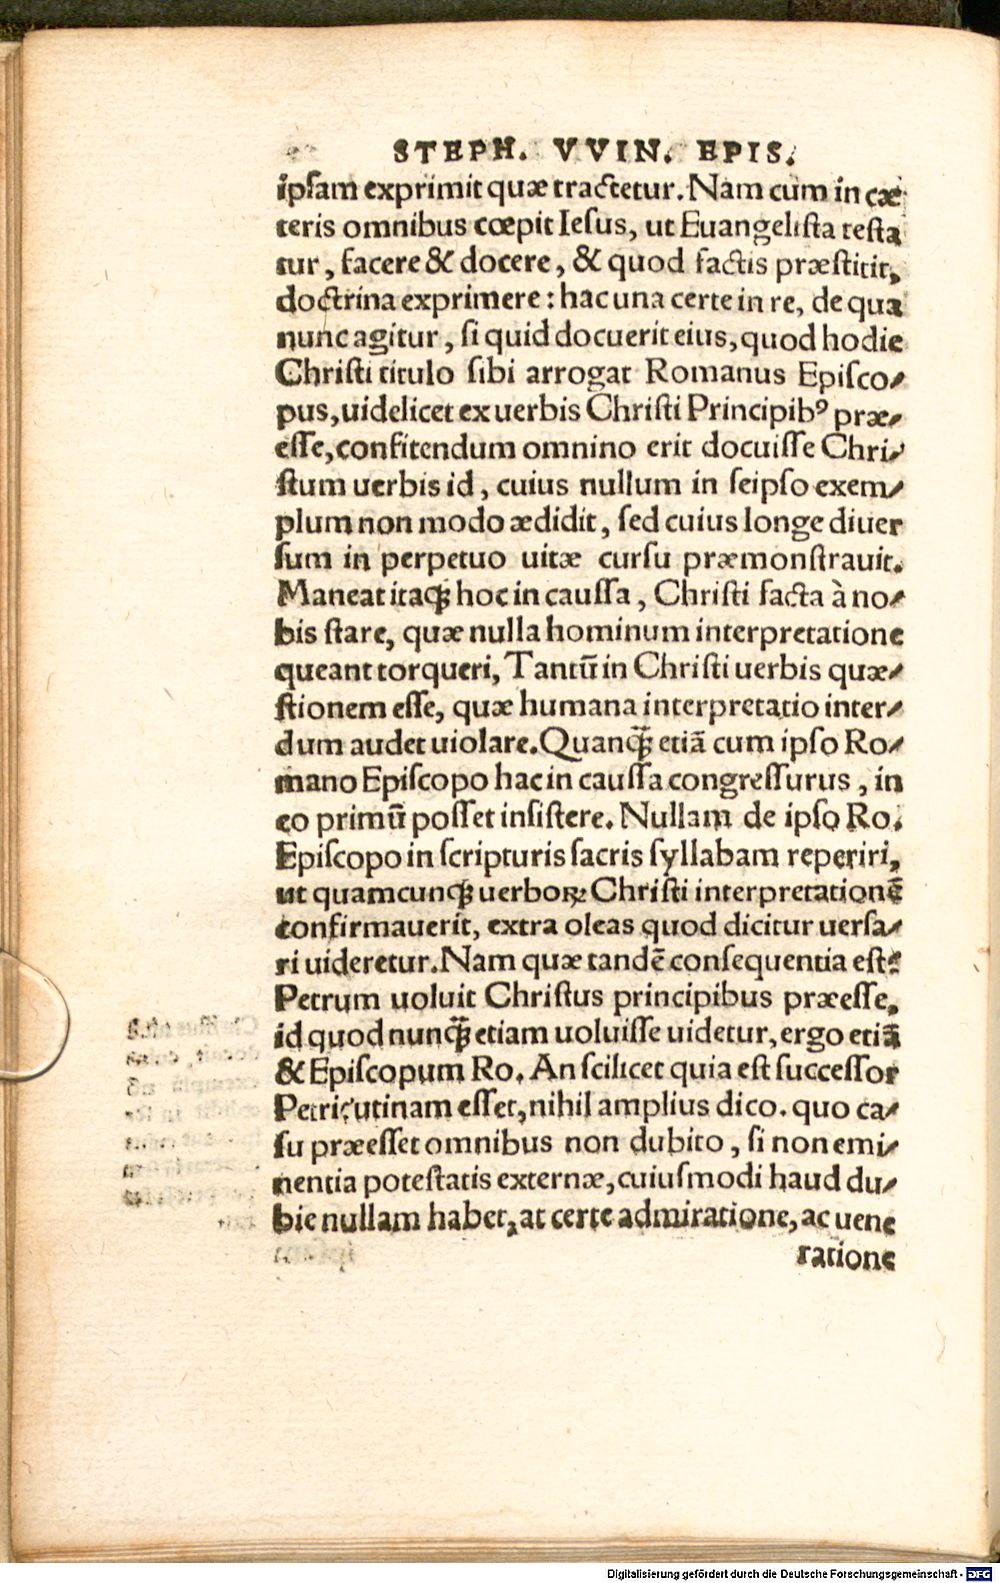 STEPH. VVIN. EPIS.
ipſam exprimit quæ tractetur. Nam cum in cæ
teris omnibus cœpit Ieſus, ut Euangeliſta teſta
tur, facere & docere, & quod factis præſtitit,
doctrina exprimere: hac una certe in re, de qua
nunc agitur, ſi quid docuerit eius, quod hodie
Chriſti titulo ſibi arrogat Romanus Epiſco-
pus, uidelicet ex uerbis Chriſti Principibꝰ præ-
eſſe, confitendum omnino erit docuiſſe Chri-
ſtum uerbis id, cuius nullum in ſeipſo exem-
plum non modo ædidit, ſed cuius longe diuer
ſum in perpetuo uitæ curſu præmonſtrauit.
Maneat itaq; hoc in cauſſa, Chriſti facta à no-
bis ſtare, quæ nulla hominum interpretatione
queant torqueri, Tantū in Chriſti uerbis quæ-
ſtionem eſſe, quæ humana interpretatio inter-
dum audet uiolare. Quanq̃; etiã cum ipſo Ro-
mano Epiſcopo hac in cauſſa congreſſurus, in
eo primū poſſet inſiſtere. Nullam de ipſo Ro.
Epiſcopo in ſcripturis ſacris ſyllabam reperiri,
ut quamcunq; uerboꝝ Chriſti interpretationẽ
confirmauerit, extra oleas quod dicitur uerſa-
ri uideretur. Nam quæ tandẽ conſequentia eſt?
Petrum uoluit Chriſtus principibus præeſſe,
id quod nunq̃; etiam uoluiſſe uidetur, ergo etiã
& Epiſcopum Ro. An ſcilicet quia eſt ſucceſſor
Petri? utinam eſſet, nihil amplius dico. quo ca-
ſu præeſſet omnibus non dubito, ſi non emi-
nentia poteſtatis externæ, cuiuſmodi haud du-
bie nullam habet, at certe admiratione, ac uene
ratione
Digitalisierung gefördert durch die Deutsche Forschungsgemeinschaft - DFG